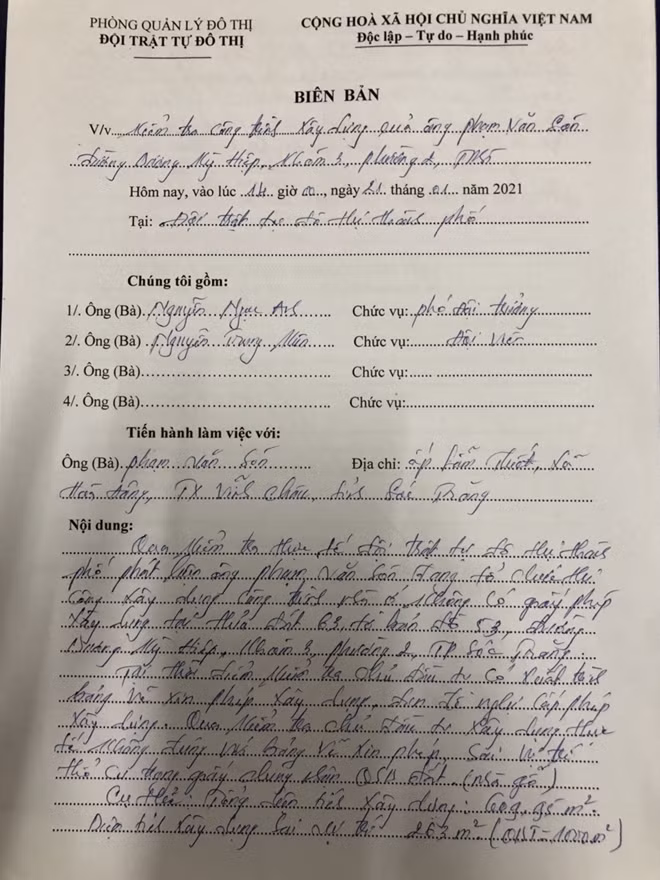 PHÒNG QUẢN LÝ ĐÔ THỊ
ĐỘI TRẬT TỰ ĐÔ THỊ
CỘNG HOÀ XÃ HỘI CHỦ NGHĨA VIỆT NAM
Độc lập – Tự do – Hạnh phúc
BIÊN BẢN
V/v Kiểm tra công trình xây dựng của ông Phạm Văn
Đường Dương Kỳ Hiệp, Khóm 3, phường 2, TPST
Hôm nay, vào lúc 14 giờ 00, ngày 21 tháng 01 năm 2021
Tại: Đội trật tự đô thị thành phố
Chúng tôi gồm:
1/. Ông (Bà) Nguyễn Ngọc Chức vụ: phó đội trưởng
2/. Ông (Bà) Nguyễn Chức vụ: Đội viên
3/. Ông (Bà) Chức vụ:
4/. Ông (Bà) Chức vụ:
Tiến hành làm việc với:
Ông (Bà) phạm Văn Són Địa chỉ: ấp xã
TX Vĩnh Châu, tỉnh Sóc Trăng
Nội dung:
Qua kiểm tra thực tế đội trật tự đô thị thành
phố phát hiện ông phạm Văn Són đang tổ chức thi
công xây dựng công trình nhà ở không có giấy phép
xây dựng tại thửa đất 63 tờ bản đồ 53, đường
Dương Kỳ Hiệp, Khóm 3, phường 2, TP Sóc Trăng.
Tại thời điểm kiểm tra chủ đầu tư có xuất trình
bảng vẽ xin phép xây dựng, đơn đề nghị cấp phép
xây dựng. Qua kiểm tra chủ đầu tư xây dựng thực
tế không đúng với bảng vẽ xin phép, sai vị trí
thổ cư trong giấy chứng nhận QSD đất.
Cụ thể: Tổng diện tích xây dựng: m².
Diện tích xây dựng sai vị trí 263 m²